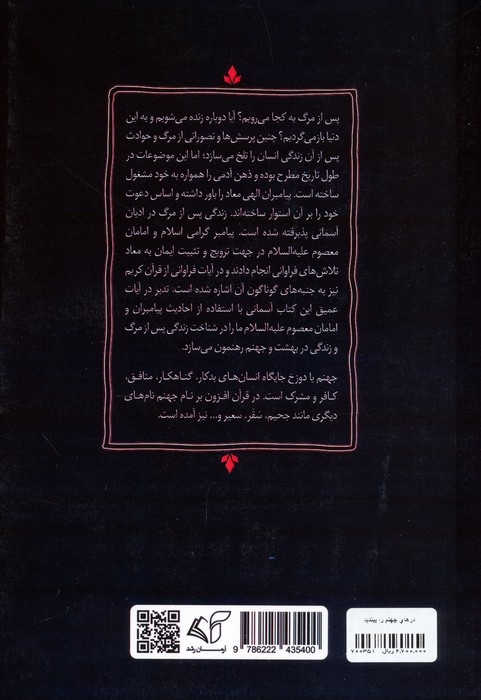 پس از مرگ به کجا می‌رویم؟ آیا دوباره زنده می‌شویم و به این
دنیا بازمی‌گردیم؟ چنین پرسش‌ها و تصوراتی از مرگ و حوادث
پس از آن زندگی انسان را تلخ می‌سازد؛ اما این موضوعات در
طول تاریخ مطرح بوده و ذهن آدمی را همواره به خود مشغول
ساخته است. پیامبران الهی معاد را باور داشته و اساس دعوت
خود را بر آن استوار ساخته‌اند. زندگی پس از مرگ در ادیان
آسمانی پذیرفته شده است. پیامبر گرامی اسلام و امامان
معصوم علیه‌السلام در جهت ترویج و تثبیت ایمان به معاد
تلاش‌های فراوانی انجام دادند و در آیات فراوانی از قرآن کریم
نیز به جنبه‌های گوناگون آن اشاره شده است. تدبر در آیات
عمیق این کتاب آسمانی با استفاده از احادیث پیامبران و
امامان معصوم علیه‌السلام ما را در شناخت زندگی پس از مرگ
و زندگی در بهشت و جهنم رهنمون می‌سازد.
جهنم یا دوزخ جایگاه انسان‌های بدکار، گناهکار، منافق،
کافر و مشرک است. در قرآن افزون بر نام جهنم نام‌های
دیگری مانند جحیم، سَقَر، سعیر و... نیز آمده است.
آرمان رشد
9 786222 435400
در هاي جهنم را ببنديد
۷۰۰۳۵۱ ۲,۷۰۰,۰۰۰ ریال